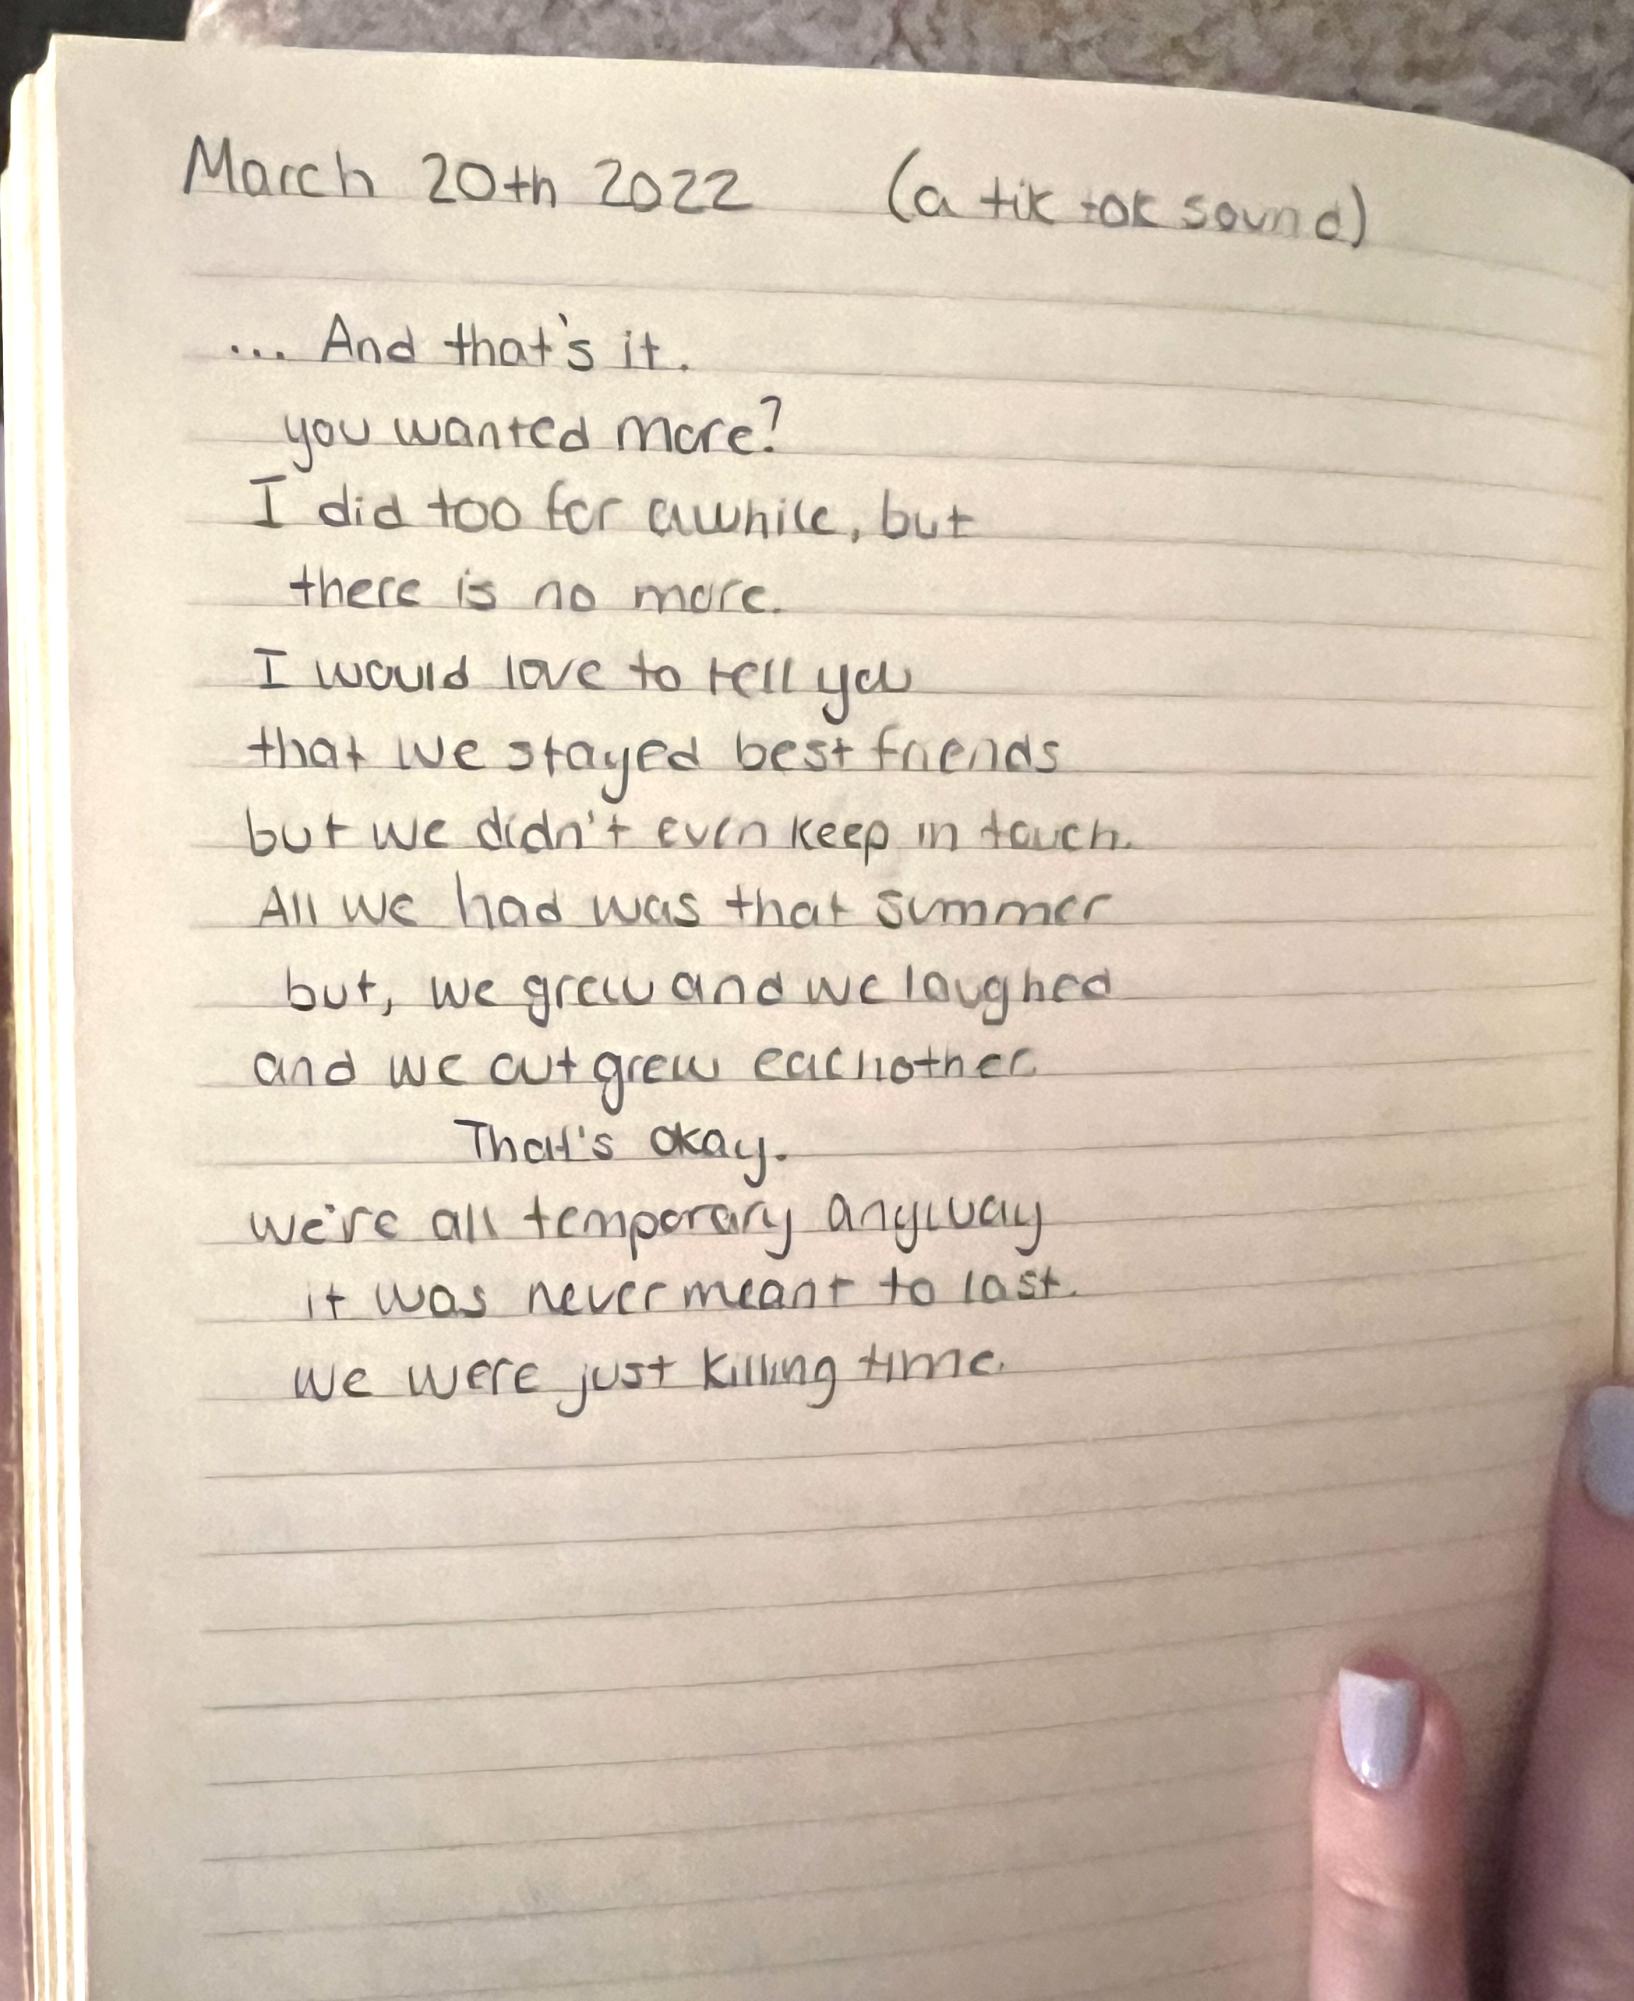 March 20th 2022 (a tik tok sound)
... And that's it.
you wanted more?
I did too for awhile, but
there is no more.
I would love to tell you
that we stayed best friends
but we didn't even keep in touch.
All we had was that summer
but, we grew and we laughed
and we outgrew eachother.
That's okay.
we're all temporary anyway
it was never meant to last.
we were just killing time.